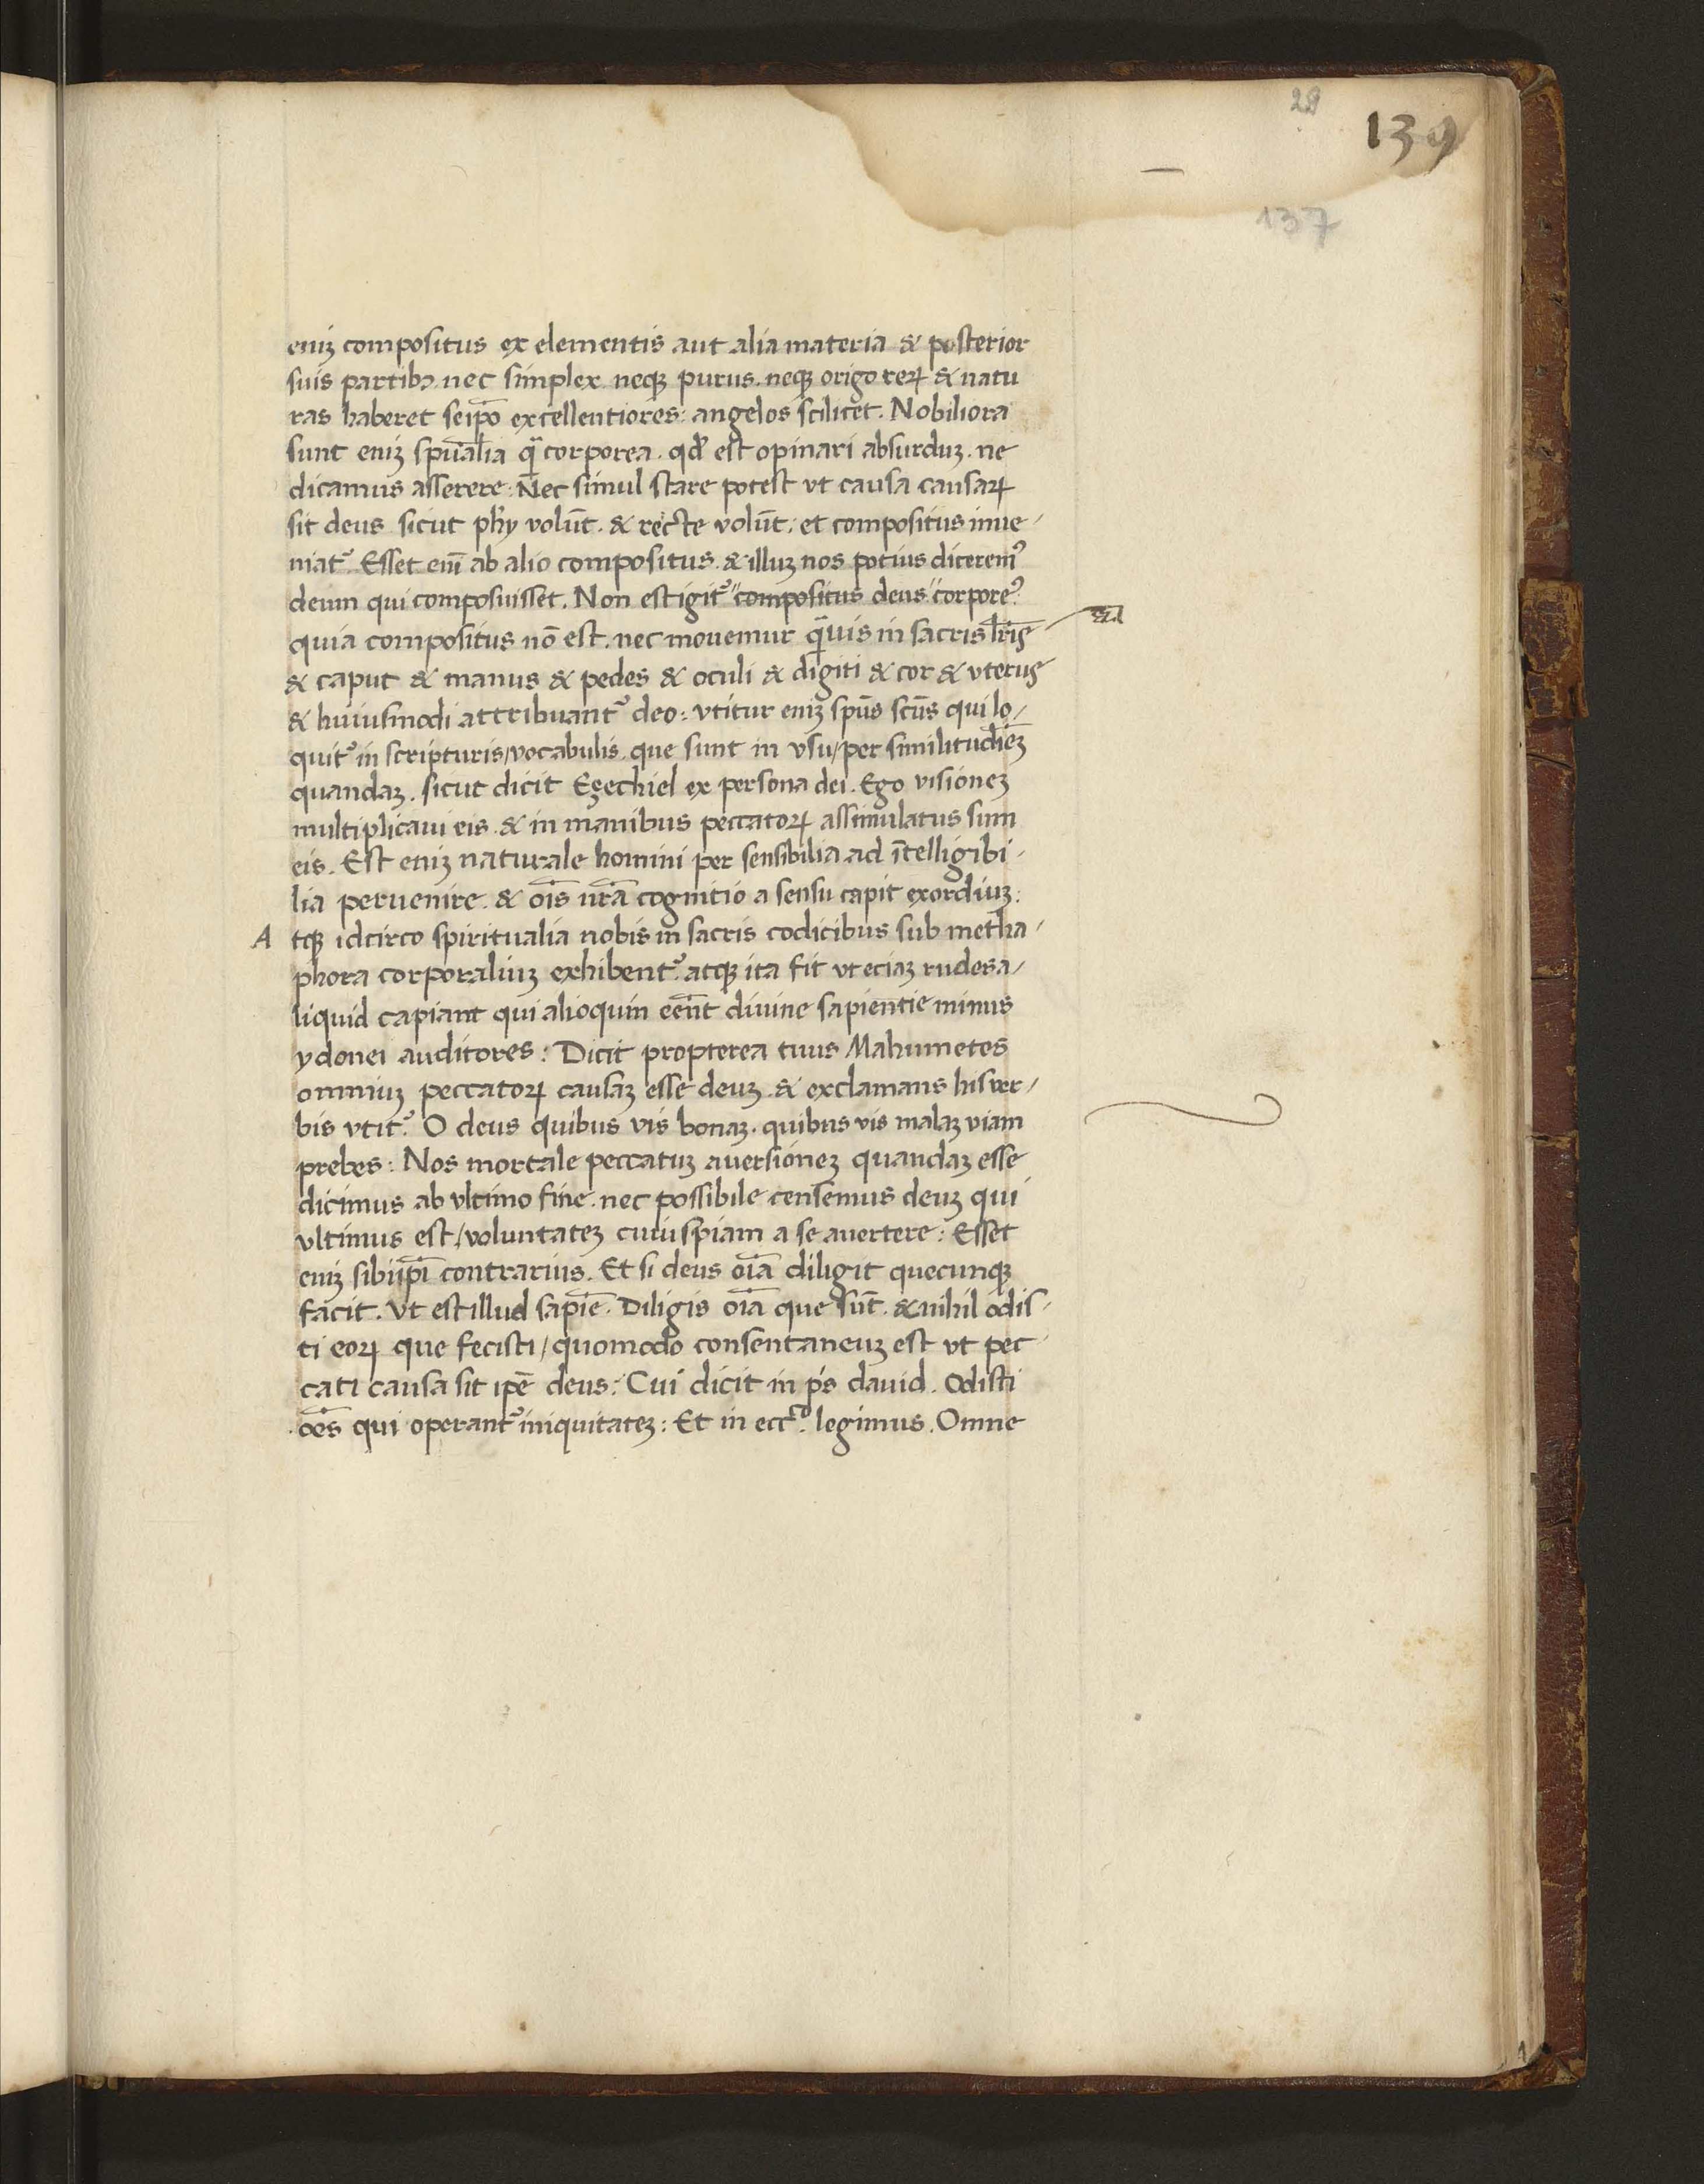 28
139
137
eniʒ compositus ex elementis aut alia materia & posterior
suis partibꝫ nec simplex neqꝫ purus. neqꝫ origo reꝝ & natu
ras haberet seip̄o excellentiores: angelos scilicet. Nobiliora
sunt eniʒ spūalia q̄ corporea. qd̄ est opinari absurduʒ. ne
dicamus asserere: Nec simul stare potest vt causa causaꝝ
sit deus sicut phy volūt. & recte volūt: et compositus inue-
niat᷑. Esset eni̅ ab alio compositus. & illuʒ nos potius dicerem᷒
deum qui composuisset. Non est igit᷑ "compositus deus "corpore᷒
quia compositus nō est. nec mouemur q̄uis in sacris lr̄is
& caput & manus & pedes & oculi & digiti & cor & vterus
& huiusmodi attribuant᷑ deo: vtitur eniʒ spūs scūs qui lo/
quit᷑ in scripturis/vocabulis que sunt in vsu/per similitudīeʒ
quandaʒ. sicut dicit Ezechiel ex persona dei. Ego visioneʒ
multiplicaui eis & in manibus peccatoꝝ assimulatus sum
eis. Est eniʒ naturale homini per sensibilia ad ītelligibi-
lia peruenire. & oīs nr̄a cognitio a sensu capit exordiuʒ:
A tqꝫ idcirco spiritualia nobis in sacris codicibus sub metha-
phora corporaliuʒ exhibent᷑. atqꝫ ita fit vt eciaʒ rudes a/
liquid capiant qui alioquin eēnt diuine sapientie minus
ydonei auditores: Dicit propterea tuus Mahumetes
omniuʒ peccatoꝝ causaʒ esse deuʒ & exclamans his ver-
bis vtit᷑. O deus quibus vis bonaʒ. quibus vis malaʒ viam
prebes: Nos mortale peccatuʒ auersioneʒ quandaʒ esse
dicimus ab vltimo fine. nec possibile censemus deuʒ qui
vltimus est/voluntateʒ cuiuspiam a se auertere: Esset
eniʒ sibiip̄i contrarius. Et si deus oīa diligit quecunqꝫ
facit. vt est illud sapīe. Diligis oīa que sūt. & nihil odis-
ti eoꝝ que fecisti/quomodo consentaneuʒ est vt pec-
cati causa sit ip̄e deus: Cui dicit in ps̄ dauid. Odisti
oēs qui operant᷑ iniquitateʒ: Et in ecc͞o. legimus. Omne